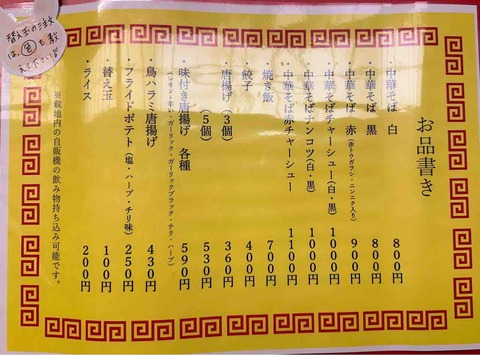 お品書き
・中華そば 白 800円
・中華そば 黒 800円
・中華そば 赤(赤トウガラシ・ニンニク入り) 900円
・中華そばチャーシュー(白・黒) 1000円
・中華そばナンコツ(白・黒) 1000円
・中華そば赤チャーシュー 1100円
・焼き飯 700円
・餃子 400円
・唐揚げ(3個) 360円
(5個) 530円
・味付き唐揚げ 各種 590円
(レモン・辛い・ガーリック・ガーリックブラック・チリ・ハーブ)
・鳥ハラミ唐揚げ 430円
・フライドポテト(塩・ハーブ・チリ味) 250円
・替え玉 100円
・ライス 200円
※敷地内の自販機の飲み物持ち込み可能です。
替え玉の注文
は、色も教
えて下さい